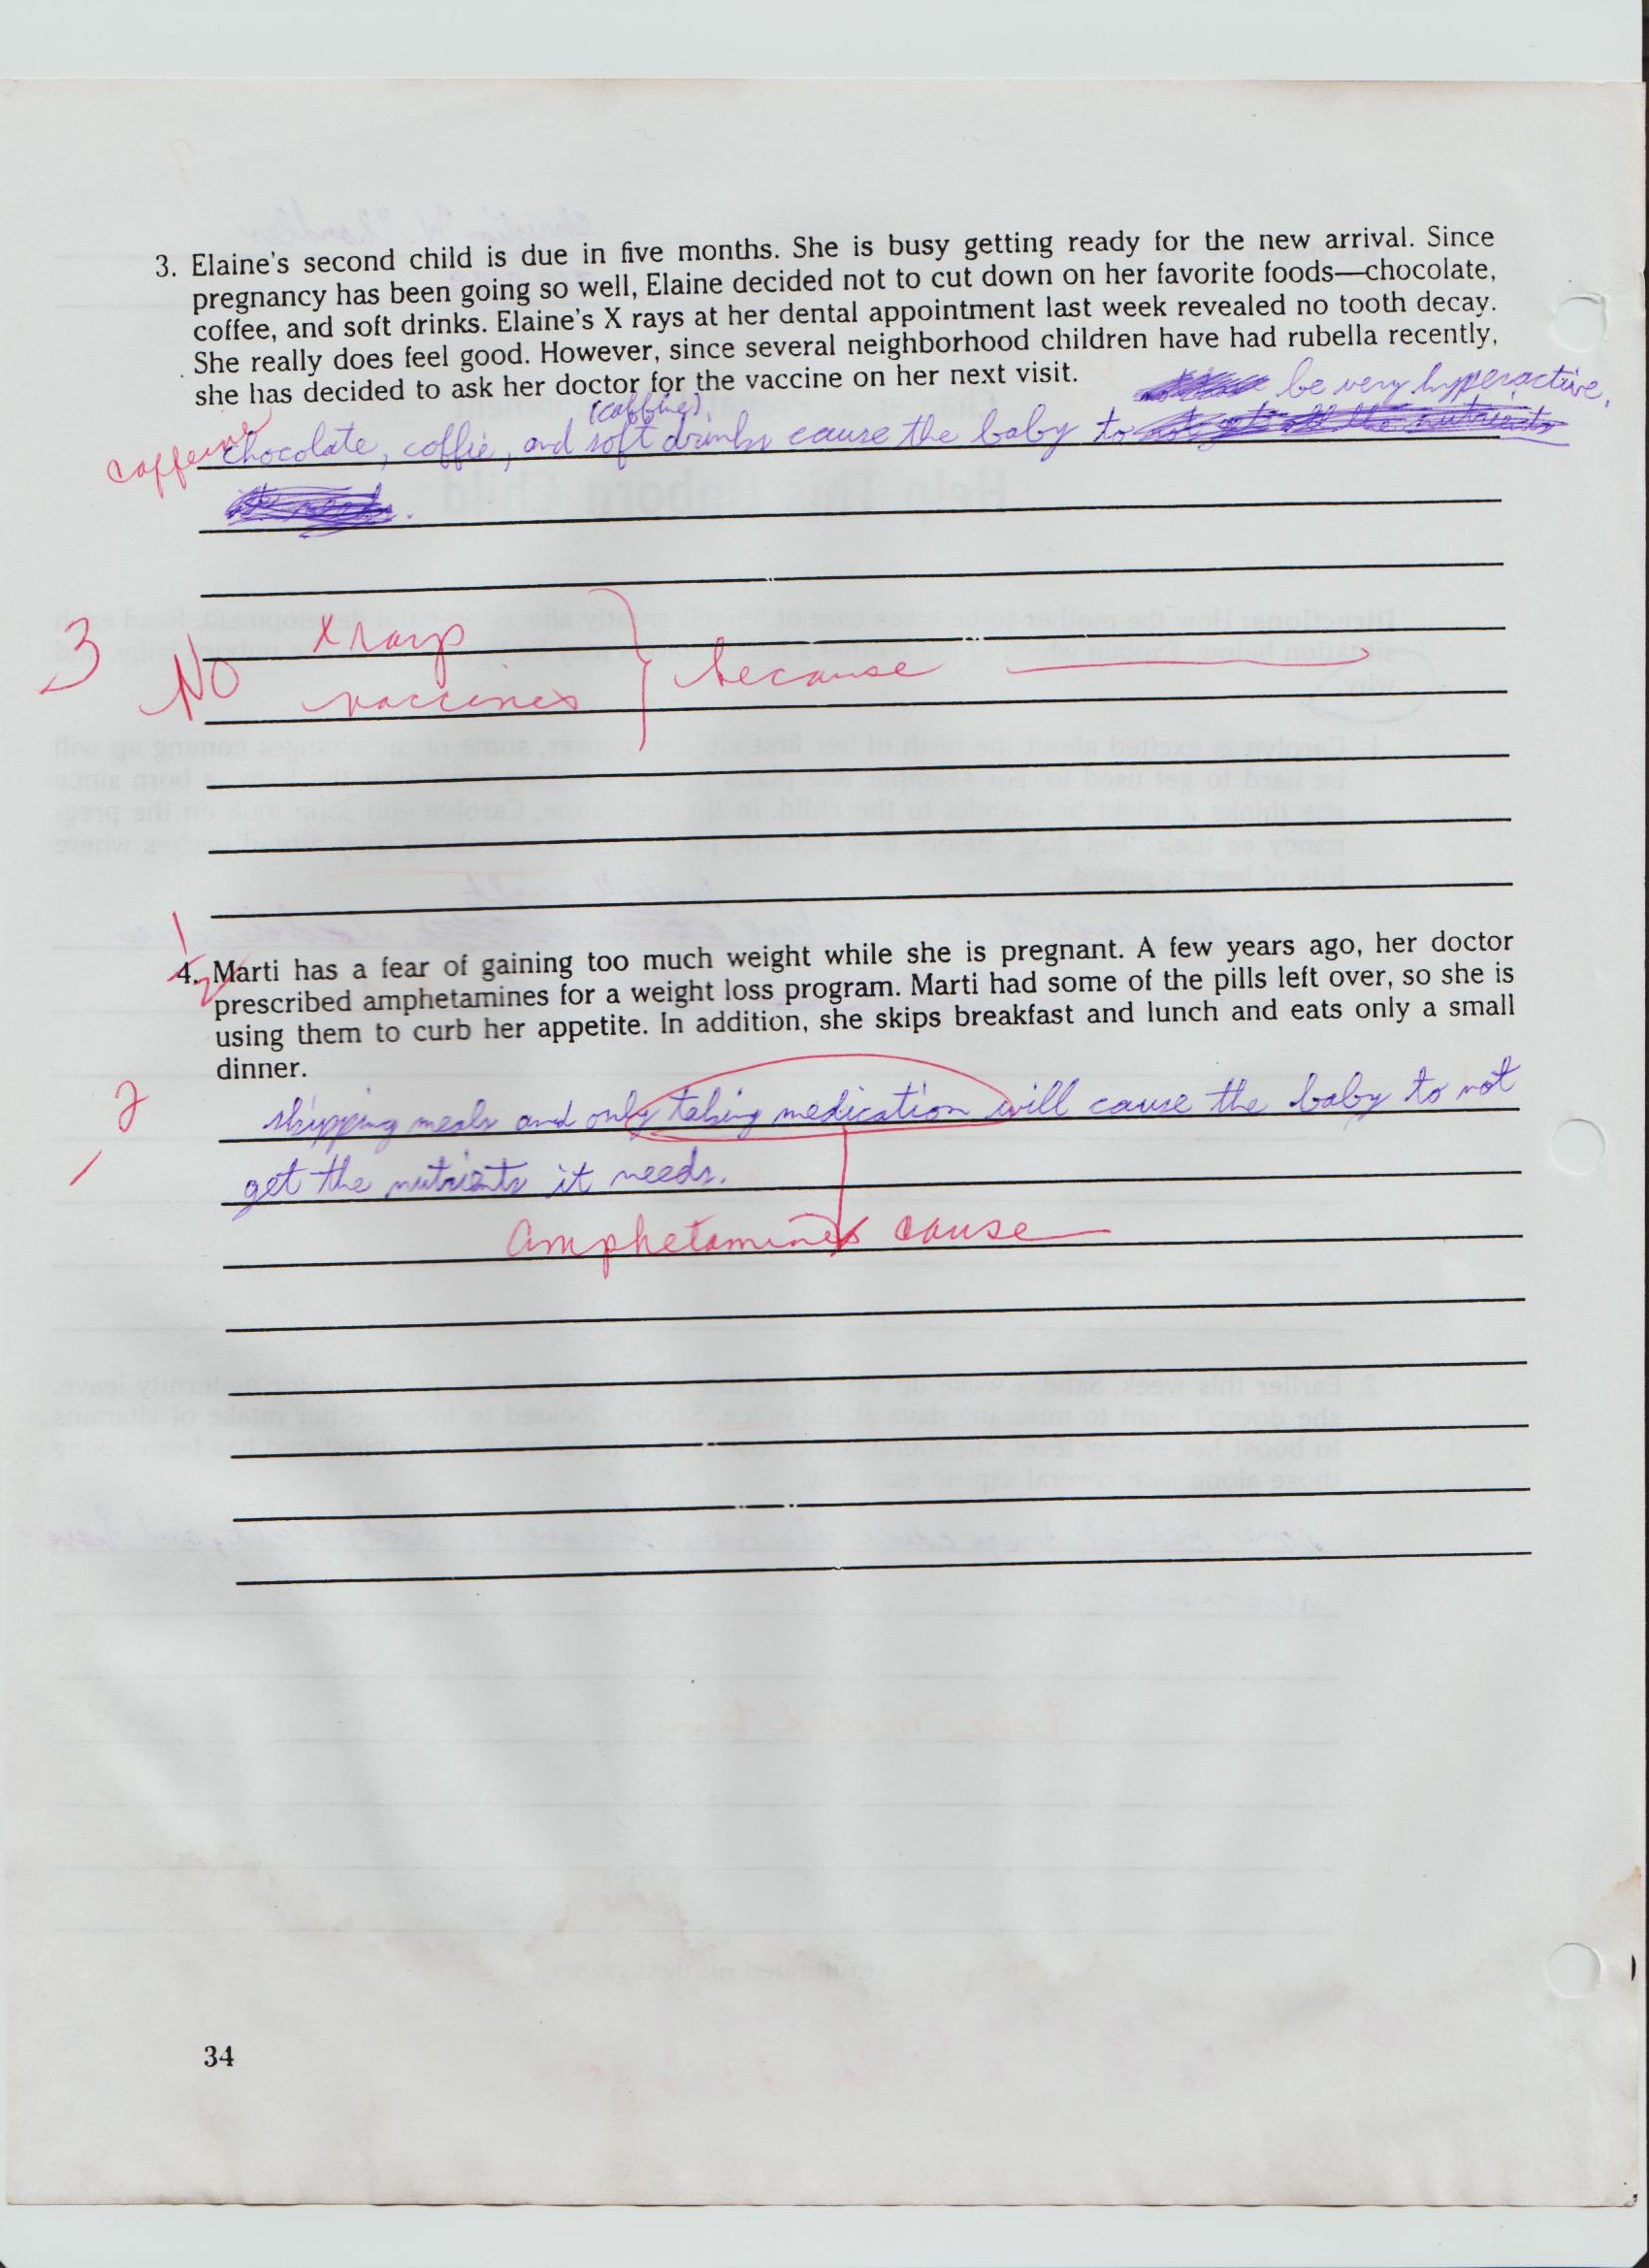 3. Elaine's second child is due in five months. She is busy getting ready for the new arrival. Since
pregnancy has been going so well, Elaine decided not to cut down on her favorite foods—chocolate,
coffee, and soft drinks. Elaine's X rays at her dental appointment last week revealed no tooth decay.
She really does feel good. However, since several neighborhood children have had rubella recently,
she has decided to ask her doctor for the vaccine on her next visit.
be very hyperactive.
caffeine
chocolate, coffie, and soft drinks cause the baby to
3
No xrays
vaccines
because
1
4. Marti has a fear of gaining too much weight while she is pregnant. A few years ago, her doctor
prescribed amphetamines for a weight loss program. Marti had some of the pills left over, so she is
using them to curb her appetite. In addition, she skips breakfast and lunch and eats only a small
dinner.
2
skipping meals and only taking medication will cause the baby to not
get the nutrients it needs.
Amphetamines cause
34